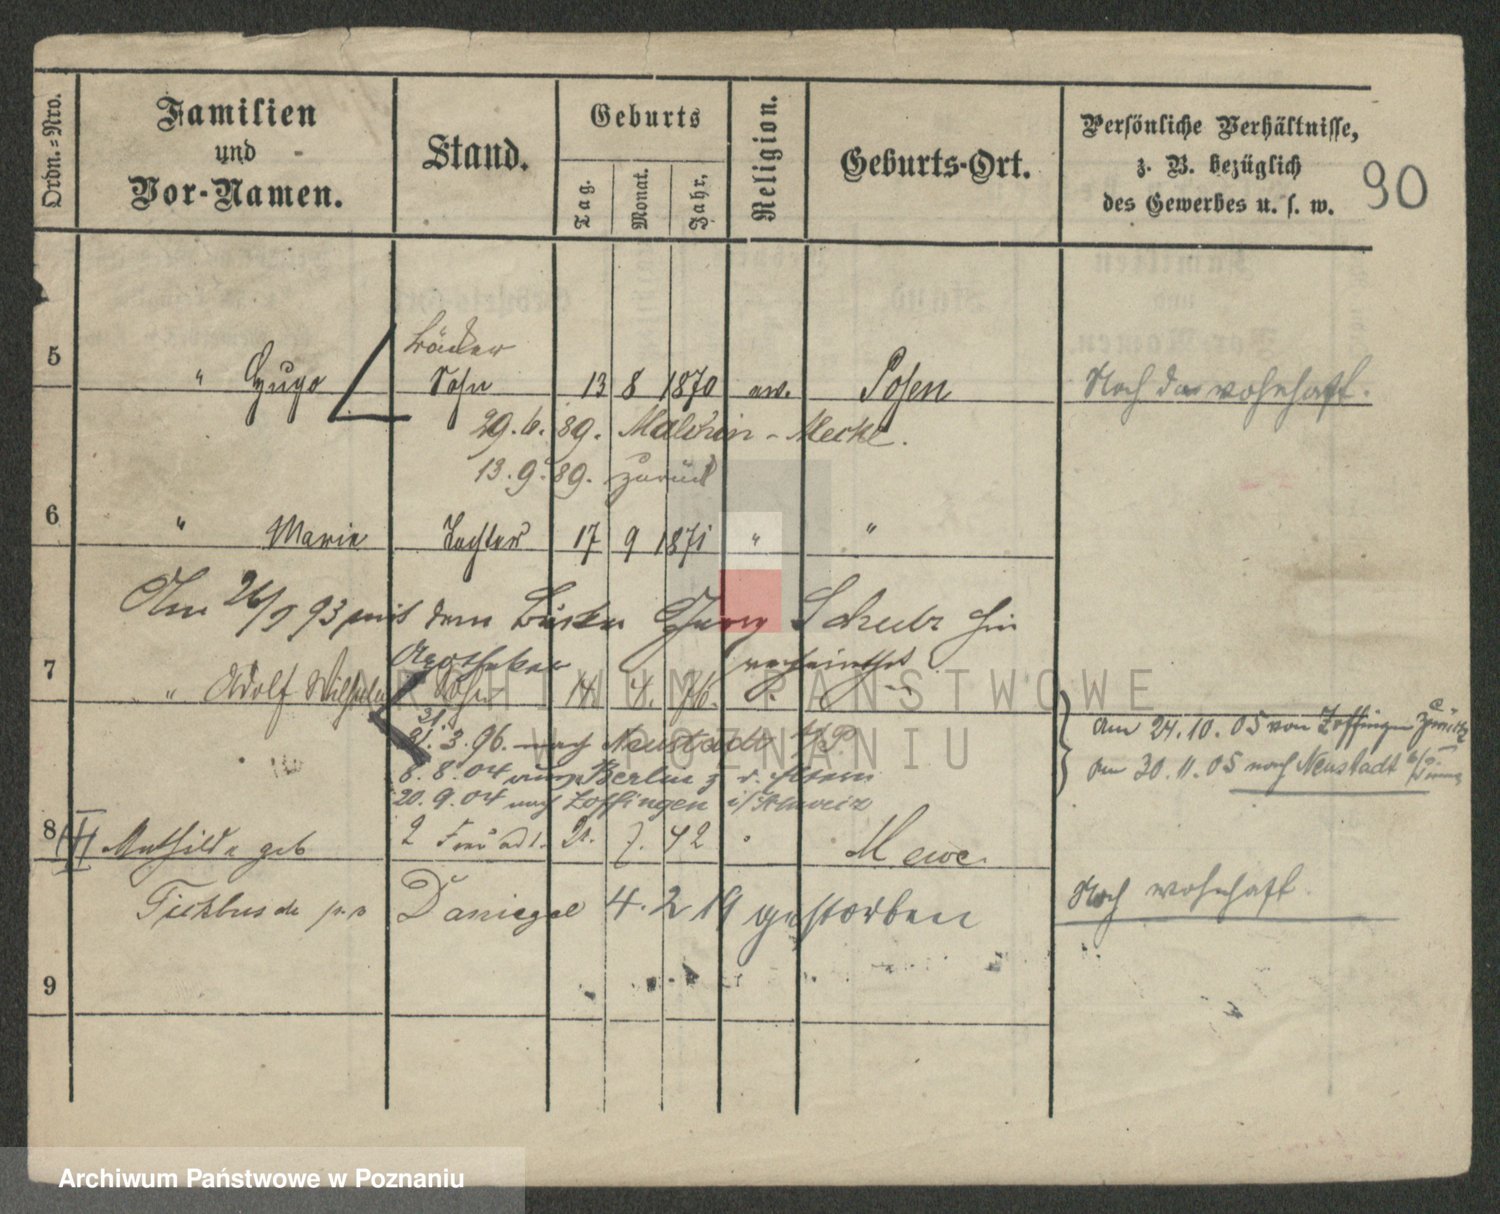 Ordn.=Nro.
Familien
und
Vor-Namen.
Stand.
Geburts
Tag.
Monat.
Jahr.
Religion.
Geburts-Ort.
Persönliche Verhältnisse,
z. B. bezüglich
des Gewerbes u. s. w.
90
Bäcker
5 " Hugo Sohn 13 8 1870 ev. Posen Noch da wohnhaft.
29.6.89. Malchin - Meckl.
13.9.89. zurück
6 " Marie Tochter 17 9 1871 " "
Am 26/9 93 mit dem Georg Schulz hier
verheirathet
Apotheker
7 " Adolf Wilhelm Sohn 14. 4. 76. " "
31.
21.3.96. nach Neustadt
8.8.04 Berlin z. d. Eltern
20.9.04 nach Zoffingen i/Schweiz
Am 24.10.05 von Zoffingen zurück
Am 30.11.05 nach Neustadt
8 II Mathilde geb 2 Frau ad 1. 21. 7. 42 " Mewe.
p. Danziger 4.2 19 gestorben
Noch wohnhaft.
9
ARCHIWUM PAŃSTWOWE
W POZNANIU
Archiwum Państwowe w Poznaniu